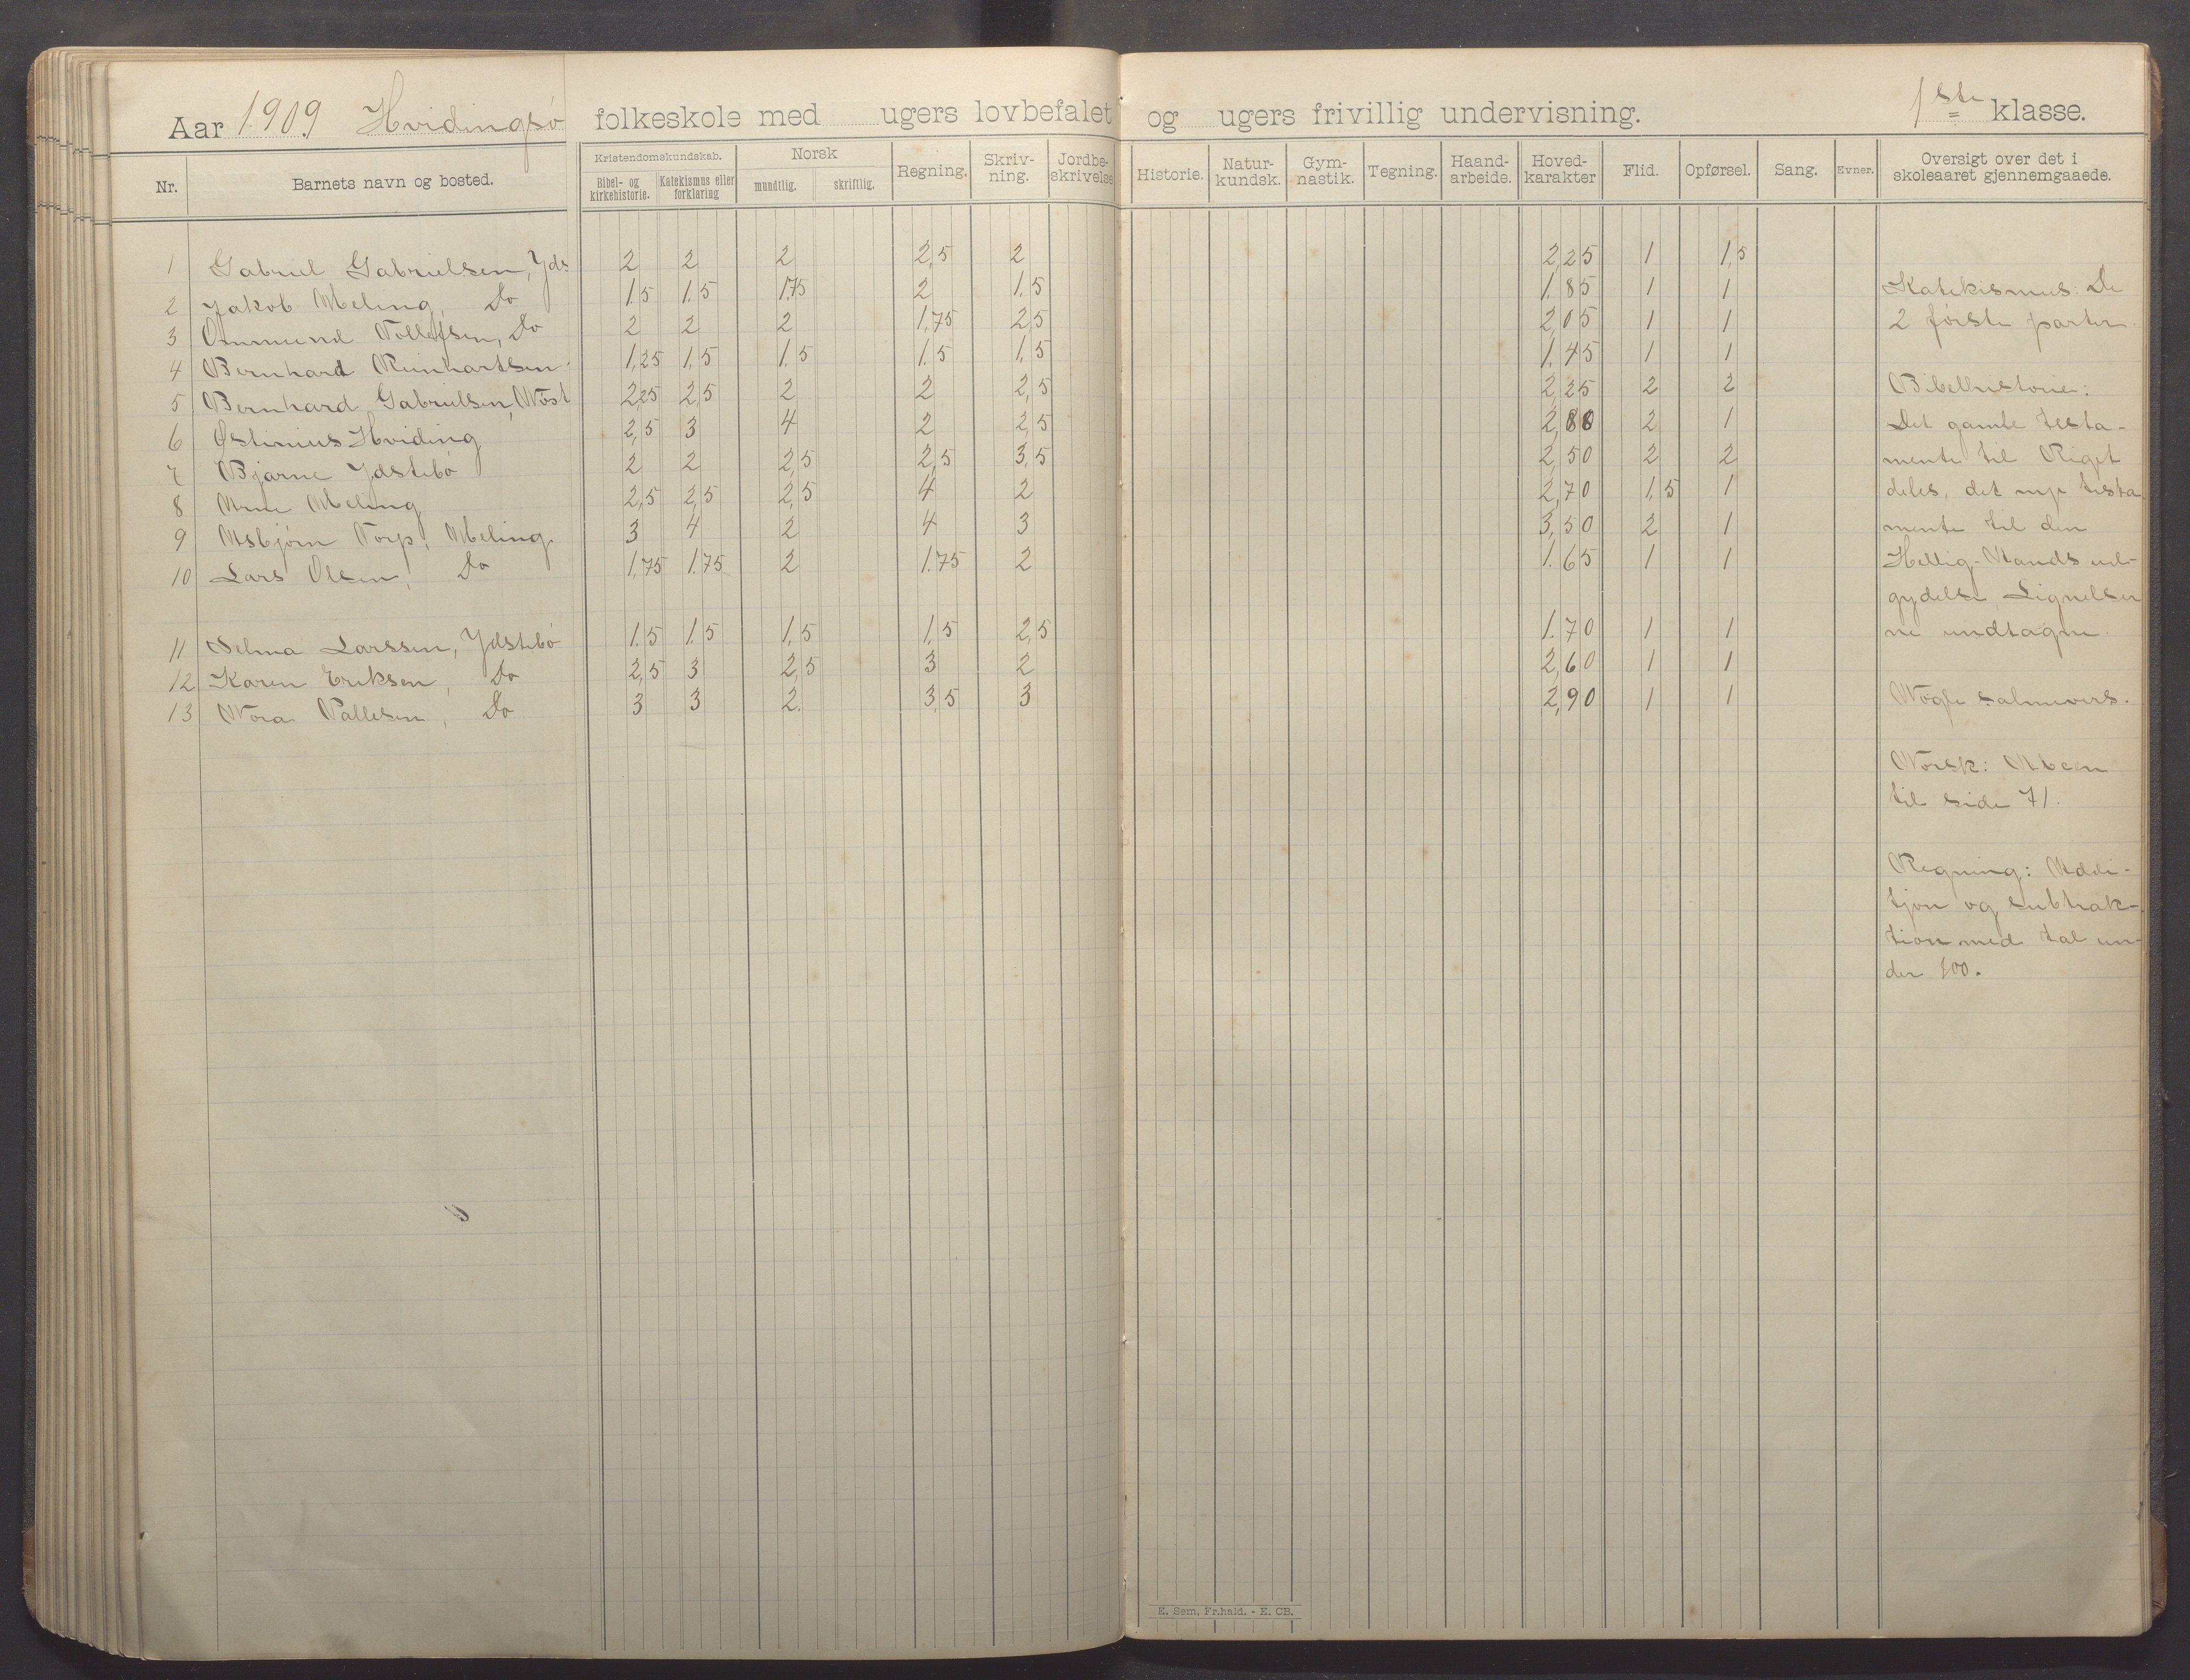 Aar 1909 Hvidingsö folkeskole med ugers lovbefalet og ugers frivillig undervisning. 1ste klasse.
Nr. Barnets navn og bosted. Kristendomskundskab. Bibel- og kirkehistorie. Katekismus eller forklaring Norsk mundtlig. skriftlig. Regning. Skriv-ning. Jordbe-skrivelse Historie. Natur-kundsk. Gym-nastik. Tegning. Haand-arbeide. Hoved-karakter Flid. Opførsel. Sang. Evner. Oversigt over det i skoleaaret gjennemgaaede.
1 Gabriel Gabrielsen, Yds 2 2 2 2,5 2 2,25 1 1,5
2 Jakob Meling, Do 1.5 1.5 1.75 2 1.5 1.85 1 1
3 Ommund Tollefsen, Do 2 2 2 1,75 2,5 2,05 1 1
4 Bernhard Reinhartsen 1,25 1,5 1.5 1.5 1,5 1.45 1 1
5 Bernhard Gabrielsen, Nöst 2,25 2,5 2 2 2,5 2,25 2 2
6 Østinius Hviding 2,5 3 4 2 2,5 2,80 2 1
7 Bjarne Ydstebö 2 2 2,5 2,5 3,5 2,50 2 2
8 Arne Meling 2,5 2,5 2,5 4 2 2,70 1,5 1
9 Asbjörn Torp, Meling 3 4 2 4 3 3,50 2 1
10 Lars Olsen, Do 1.75 1.75 2 1.75 2 1.65 1 1
11 Selma Larssen, Ydstebö 1.5 1.5 1,5 1,5 2,5 1.70 1 1
12 Karen Eriksen, Do 2,5 3 2,5 3 2 2,60 1 1
13 Nora Pallesen, Do 3 3 2. 3,5 3 2,90 1 1
Katekismus: De
2 förste parter.
Bibelhistorie:
Det gamle testa-
mente til Riget
deles, det nye testa
mente til den
Hellig-Aands ud-
gydelse, Lignelser
ne undtagne.
Nogle salmevers.
Norsk: Abcen
til side 71.
Regning: Addi-
tjon og subtrak-
tion med tal un-
der 100.
E. Sem, Fr.hald. - E. CB.